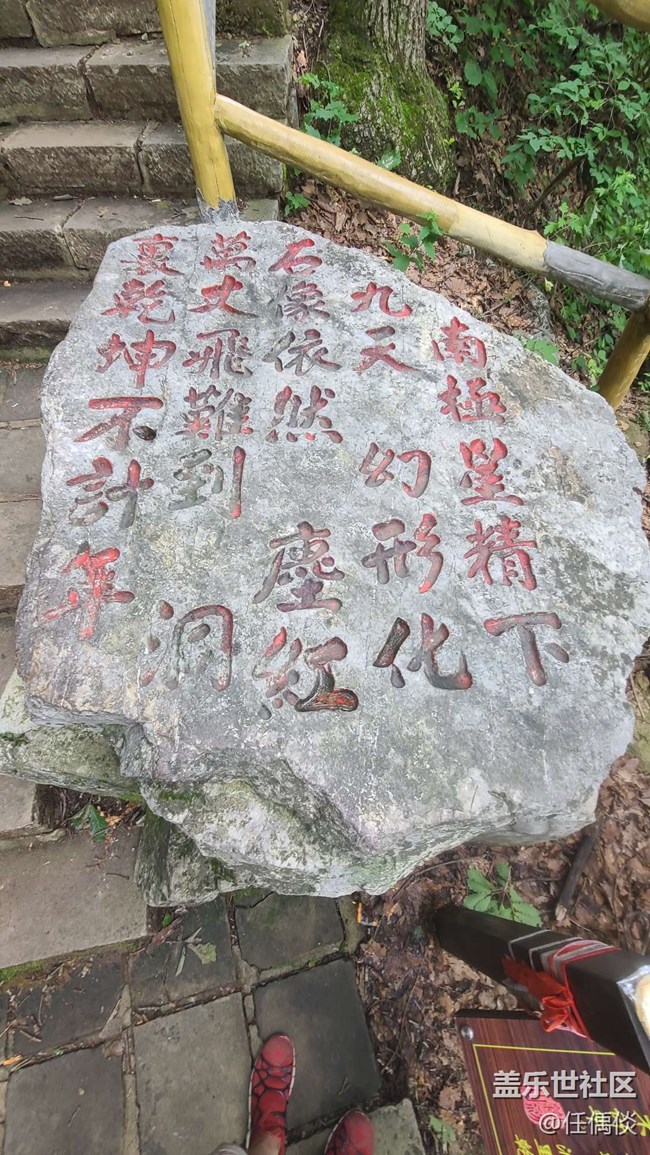 南極星精下
九天 幻形化
石像依然 塵紅
萬丈飛難到 洞
裏乾坤不計年
盖乐世社区
@任偶倓